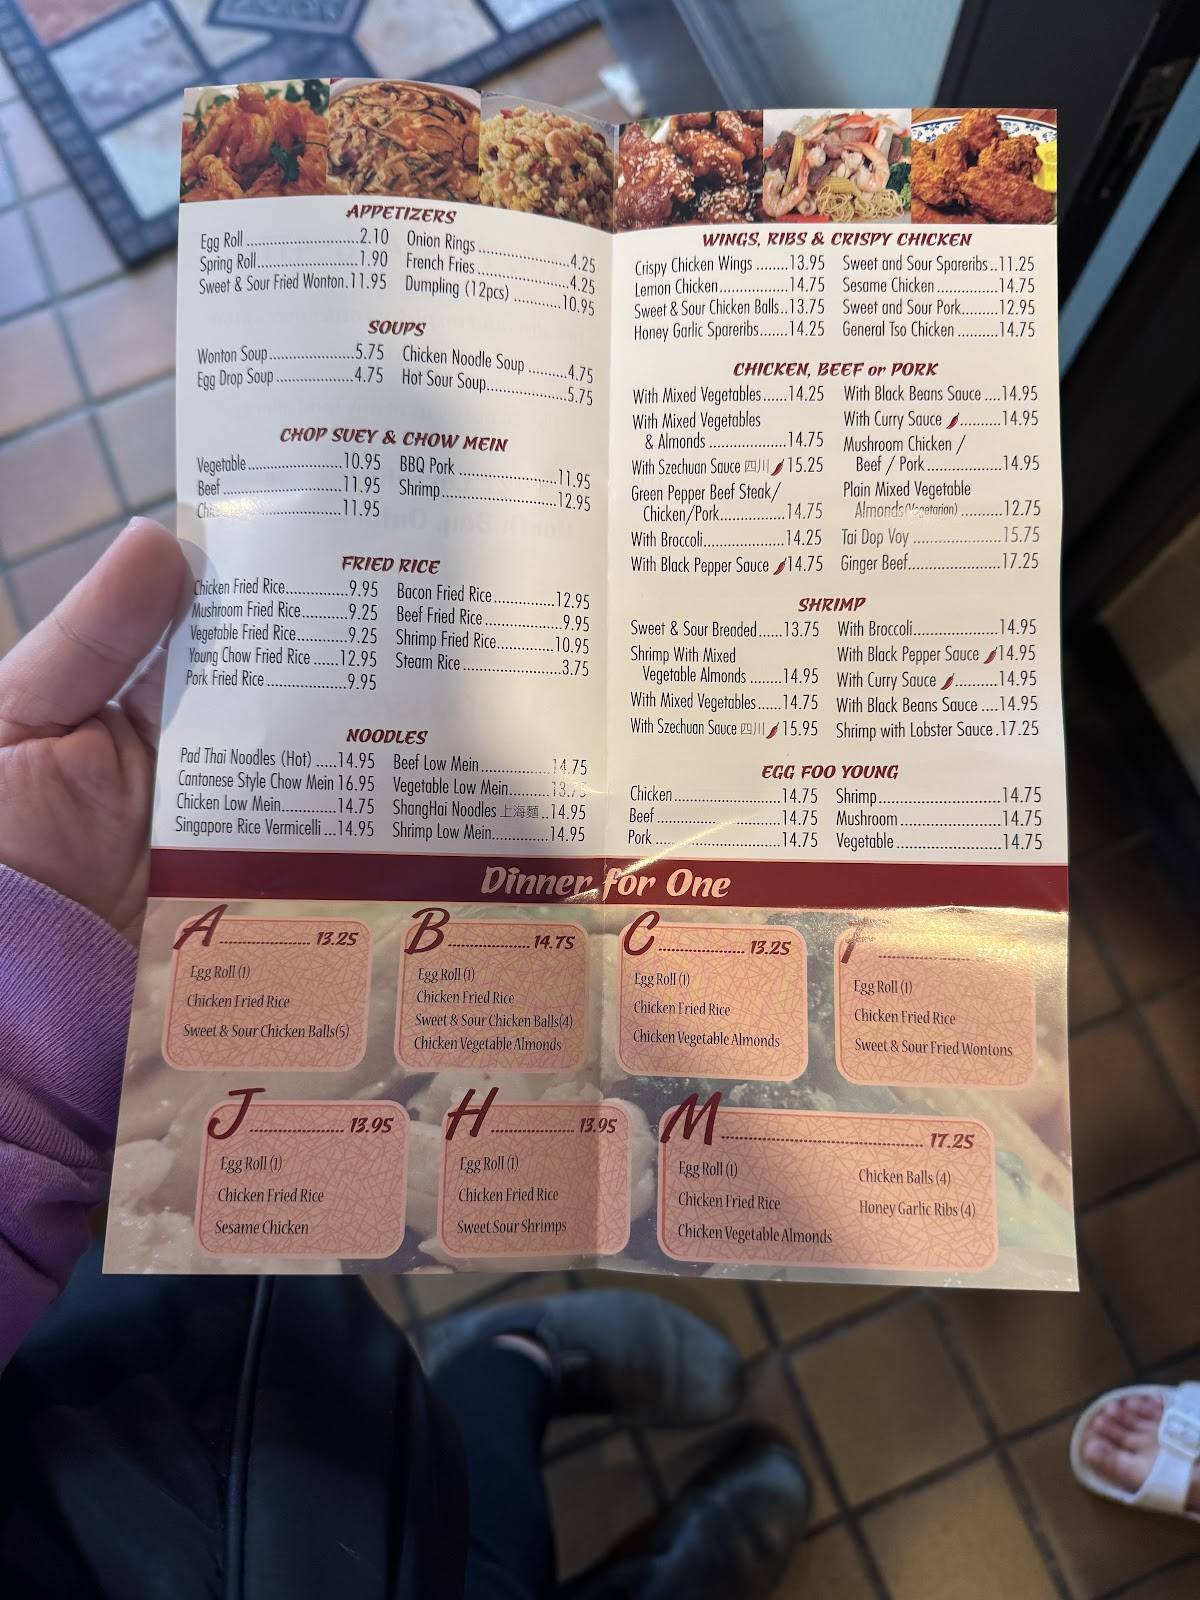 APPETIZERS
Egg Roll ..........2.10
Spring Roll..........1.90
Sweet & Sour Fried Wonton.11.95
Onion Rings ..........4.25
French Fries ..........4.25
Dumpling (12pcs) ..........10.95
SOUPS
Wonton Soup..........5.75
Egg Drop Soup ..........4.75
Chicken Noodle Soup ..........4.75
Hot Sour Soup..........5.75
CHOP SUEY & CHOW MEIN
Vegetable..........10.95
Beef..........11.95
..........11.95
BBQ Pork ..........11.95
Shrimp..........12.95
FRIED RICE
Chicken Fried Rice..........9.95
Mushroom Fried Rice..........9.25
Vegetable Fried Rice..........9.25
Young Chow Fried Rice ......12.95
Pork Fried Rice ..........9.95
Bacon Fried Rice..........12.95
Beef Fried Rice ..........9.95
Shrimp Fried Rice..........10.95
Steam Rice ..........3.75
NOODLES
Pad Thai Noodles (Hot) .....14.95
Cantonese Style Chow Mein 16.95
Chicken Low Mein..........14.75
Singapore Rice Vermicelli ...14.95
Beef Low Mein..........14.75
Vegetable Low Mein..........13.75
ShangHai Noodles 上海麵..14.95
Shrimp Low Mein..........14.95
WINGS, RIBS & CRISPY CHICKEN
Crispy Chicken Wings ........13.95
Lemon Chicken..........14.75
Sweet & Sour Chicken Balls..13.75
Honey Garlic Spareribs.......14.25
Sweet and Sour Spareribs..11.25
Sesame Chicken ..........14.75
Sweet and Sour Pork.........12.95
General Tso Chicken ..........14.75
CHICKEN, BEEF or PORK
With Mixed Vegetables......14.25
With Mixed Vegetables
& Almonds ..........14.75
With Szechuan Sauce 四川 15.25
Green Pepper Beef Steak/
Chicken/Pork..........14.75
With Broccoli..........14.25
With Black Pepper Sauce 14.75
With Black Beans Sauce ....14.95
With Curry Sauce ..........14.95
Mushroom Chicken /
Beef / Pork ..........14.95
Plain Mixed Vegetable
Almonds(Vegetarian) ..........12.75
Tai Dop Voy ..........15.75
Ginger Beef..........17.25
SHRIMP
Sweet & Sour Breaded......13.75
Shrimp With Mixed
Vegetable Almonds ........14.95
With Mixed Vegetables......14.75
With Szechuan Sauce 四川 15.95
With Broccoli..........14.95
With Black Pepper Sauce 14.95
With Curry Sauce ..........14.95
With Black Beans Sauce ....14.95
Shrimp with Lobster Sauce.17.25
EGG FOO YOUNG
Chicken..........14.75
Beef ..........14.75
Pork ..........14.75
Shrimp..........14.75
Mushroom ..........14.75
Vegetable ..........14.75
Dinner for One
A .......... 13.25
Egg Roll (1)
Chicken Fried Rice
Sweet & Sour Chicken Balls(5)
B .......... 14.75
Egg Roll (1)
Chicken Fried Rice
Sweet & Sour Chicken Balls(4)
Chicken Vegetable Almonds
C .......... 13.25
Egg Roll (1)
Chicken Fried Rice
Chicken Vegetable Almonds
Egg Roll (1)
Chicken Fried Rice
Sweet & Sour Fried Wontons
J .......... 13.95
Egg Roll (1)
Chicken Fried Rice
Sesame Chicken
H .......... 13.95
Egg Roll (1)
Chicken Fried Rice
Sweet Sour Shrimps
M .......... 17.25
Egg Roll (1)
Chicken Fried Rice
Chicken Vegetable Almonds
Chicken Balls (4)
Honey Garlic Ribs (4)